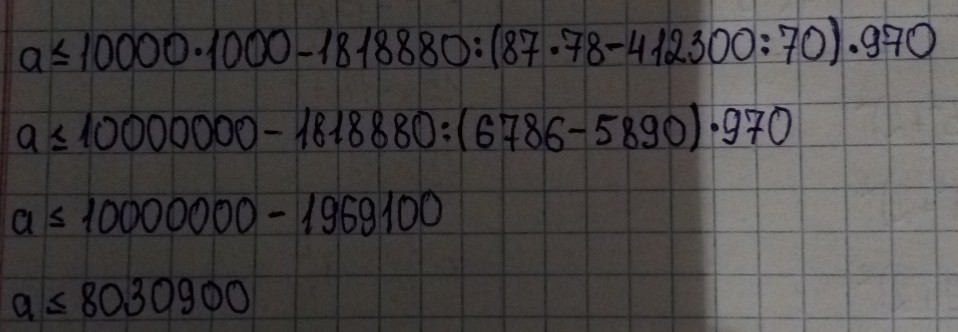 a ≤ 10000·1000-1818880:(87·78-412300:70)·970
a ≤ 10000000-1818880:(6786-5890)·970
a ≤ 10000000-1969100
a ≤ 8030900